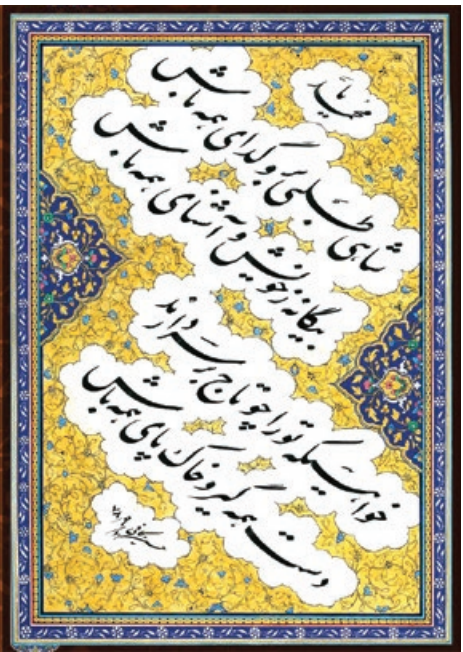 شاهی طلبی برو گدای همه باش
بیگانه ز خویش و آشنای همه باش
خواهیکه تو را چو تاج بر سر دارند
دست همه گیر و خاک پای همه باش